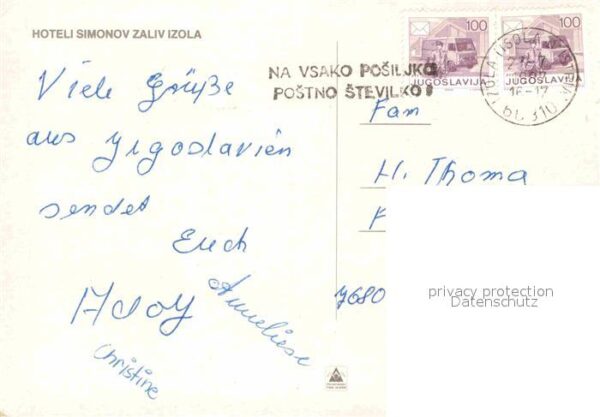 HOTELI SIMONOV ZALIV IZOLA
100
100
JUGOSLAVIJA
JUGOSLAVIJA
NA VSAKO POŠILJKO
POŠTNO ŠTEVILKO!
16-17
Viele Grüße
aus Jugoslavien
sendet
Euch
Anneliese
Christine
Fam
H. Thoma
7680
privacy protection
Datenschutz